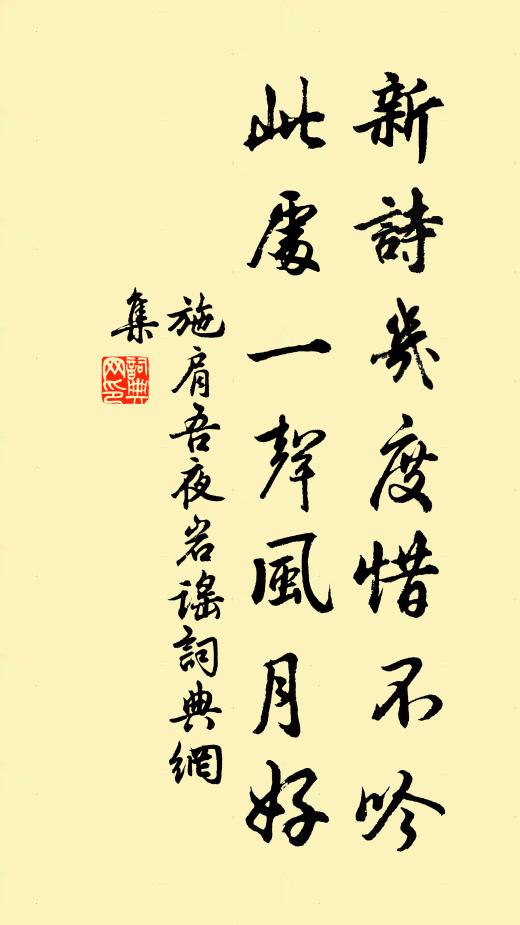 新詩幾度惜不吟
此處一聲風月好
施肩吾夜岩謠詞典網
集
詞典
网印